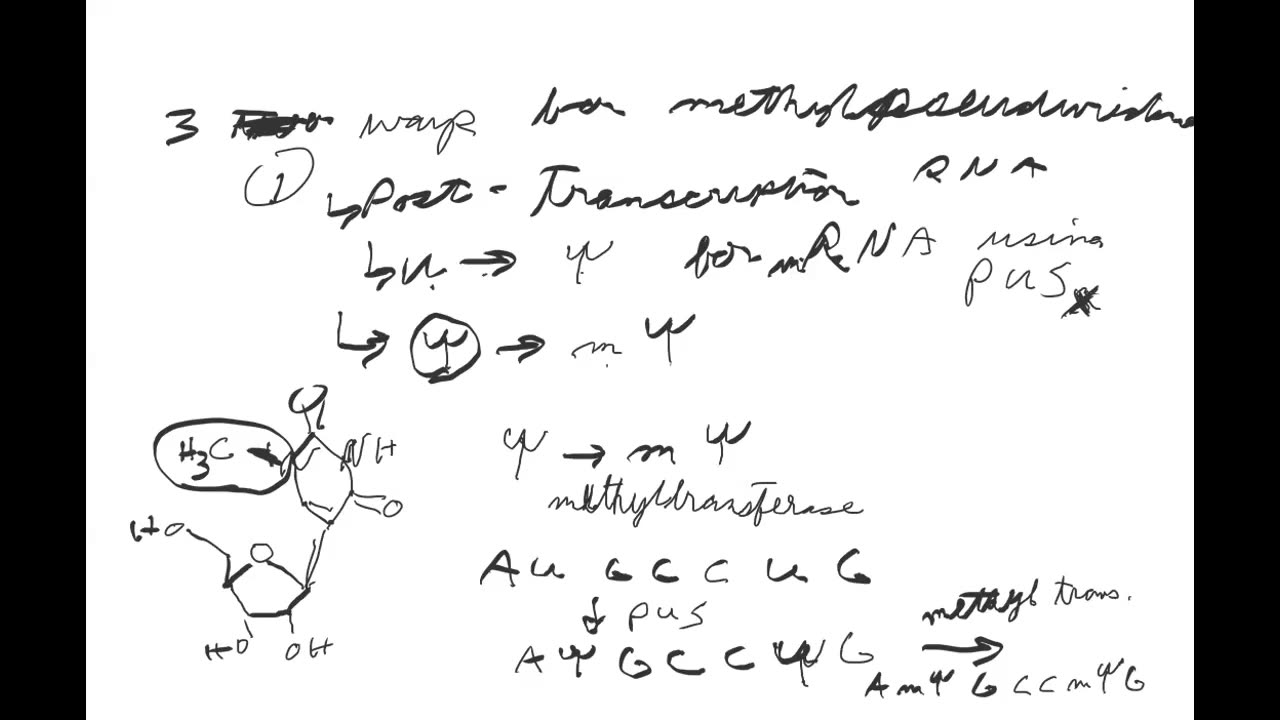 3 ways for methylpseudouridine
① ↳ Post-Transcription RNA
↳ u → Ψ for mRNA using PUS
↳ Ψ → mΨ
O
H3C NH
O
HO
O
HO OH
Ψ → mΨ
methyltransferase
AUGCCUG
↓ PUS
AΨGCCΨG methyl trans. →
AmΨGCCmΨG